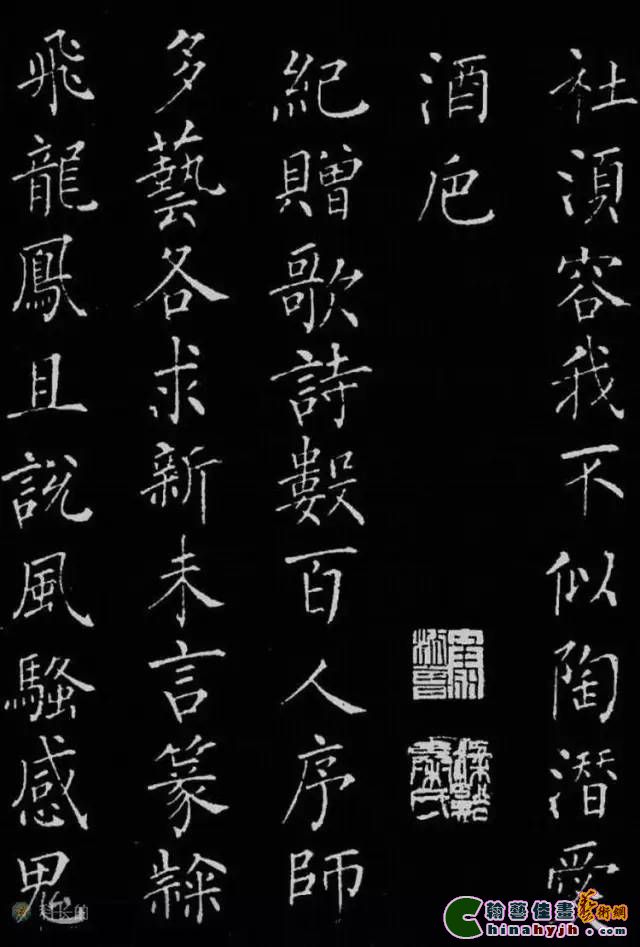 社湏容我不似陶潛愛
酒巵
紀贈歌詩數百人序師
多藝各求新未言篆隸
飛龍鳳且說風騷感鬼
翰藝佳畫藝術網
Chinahyjh.com